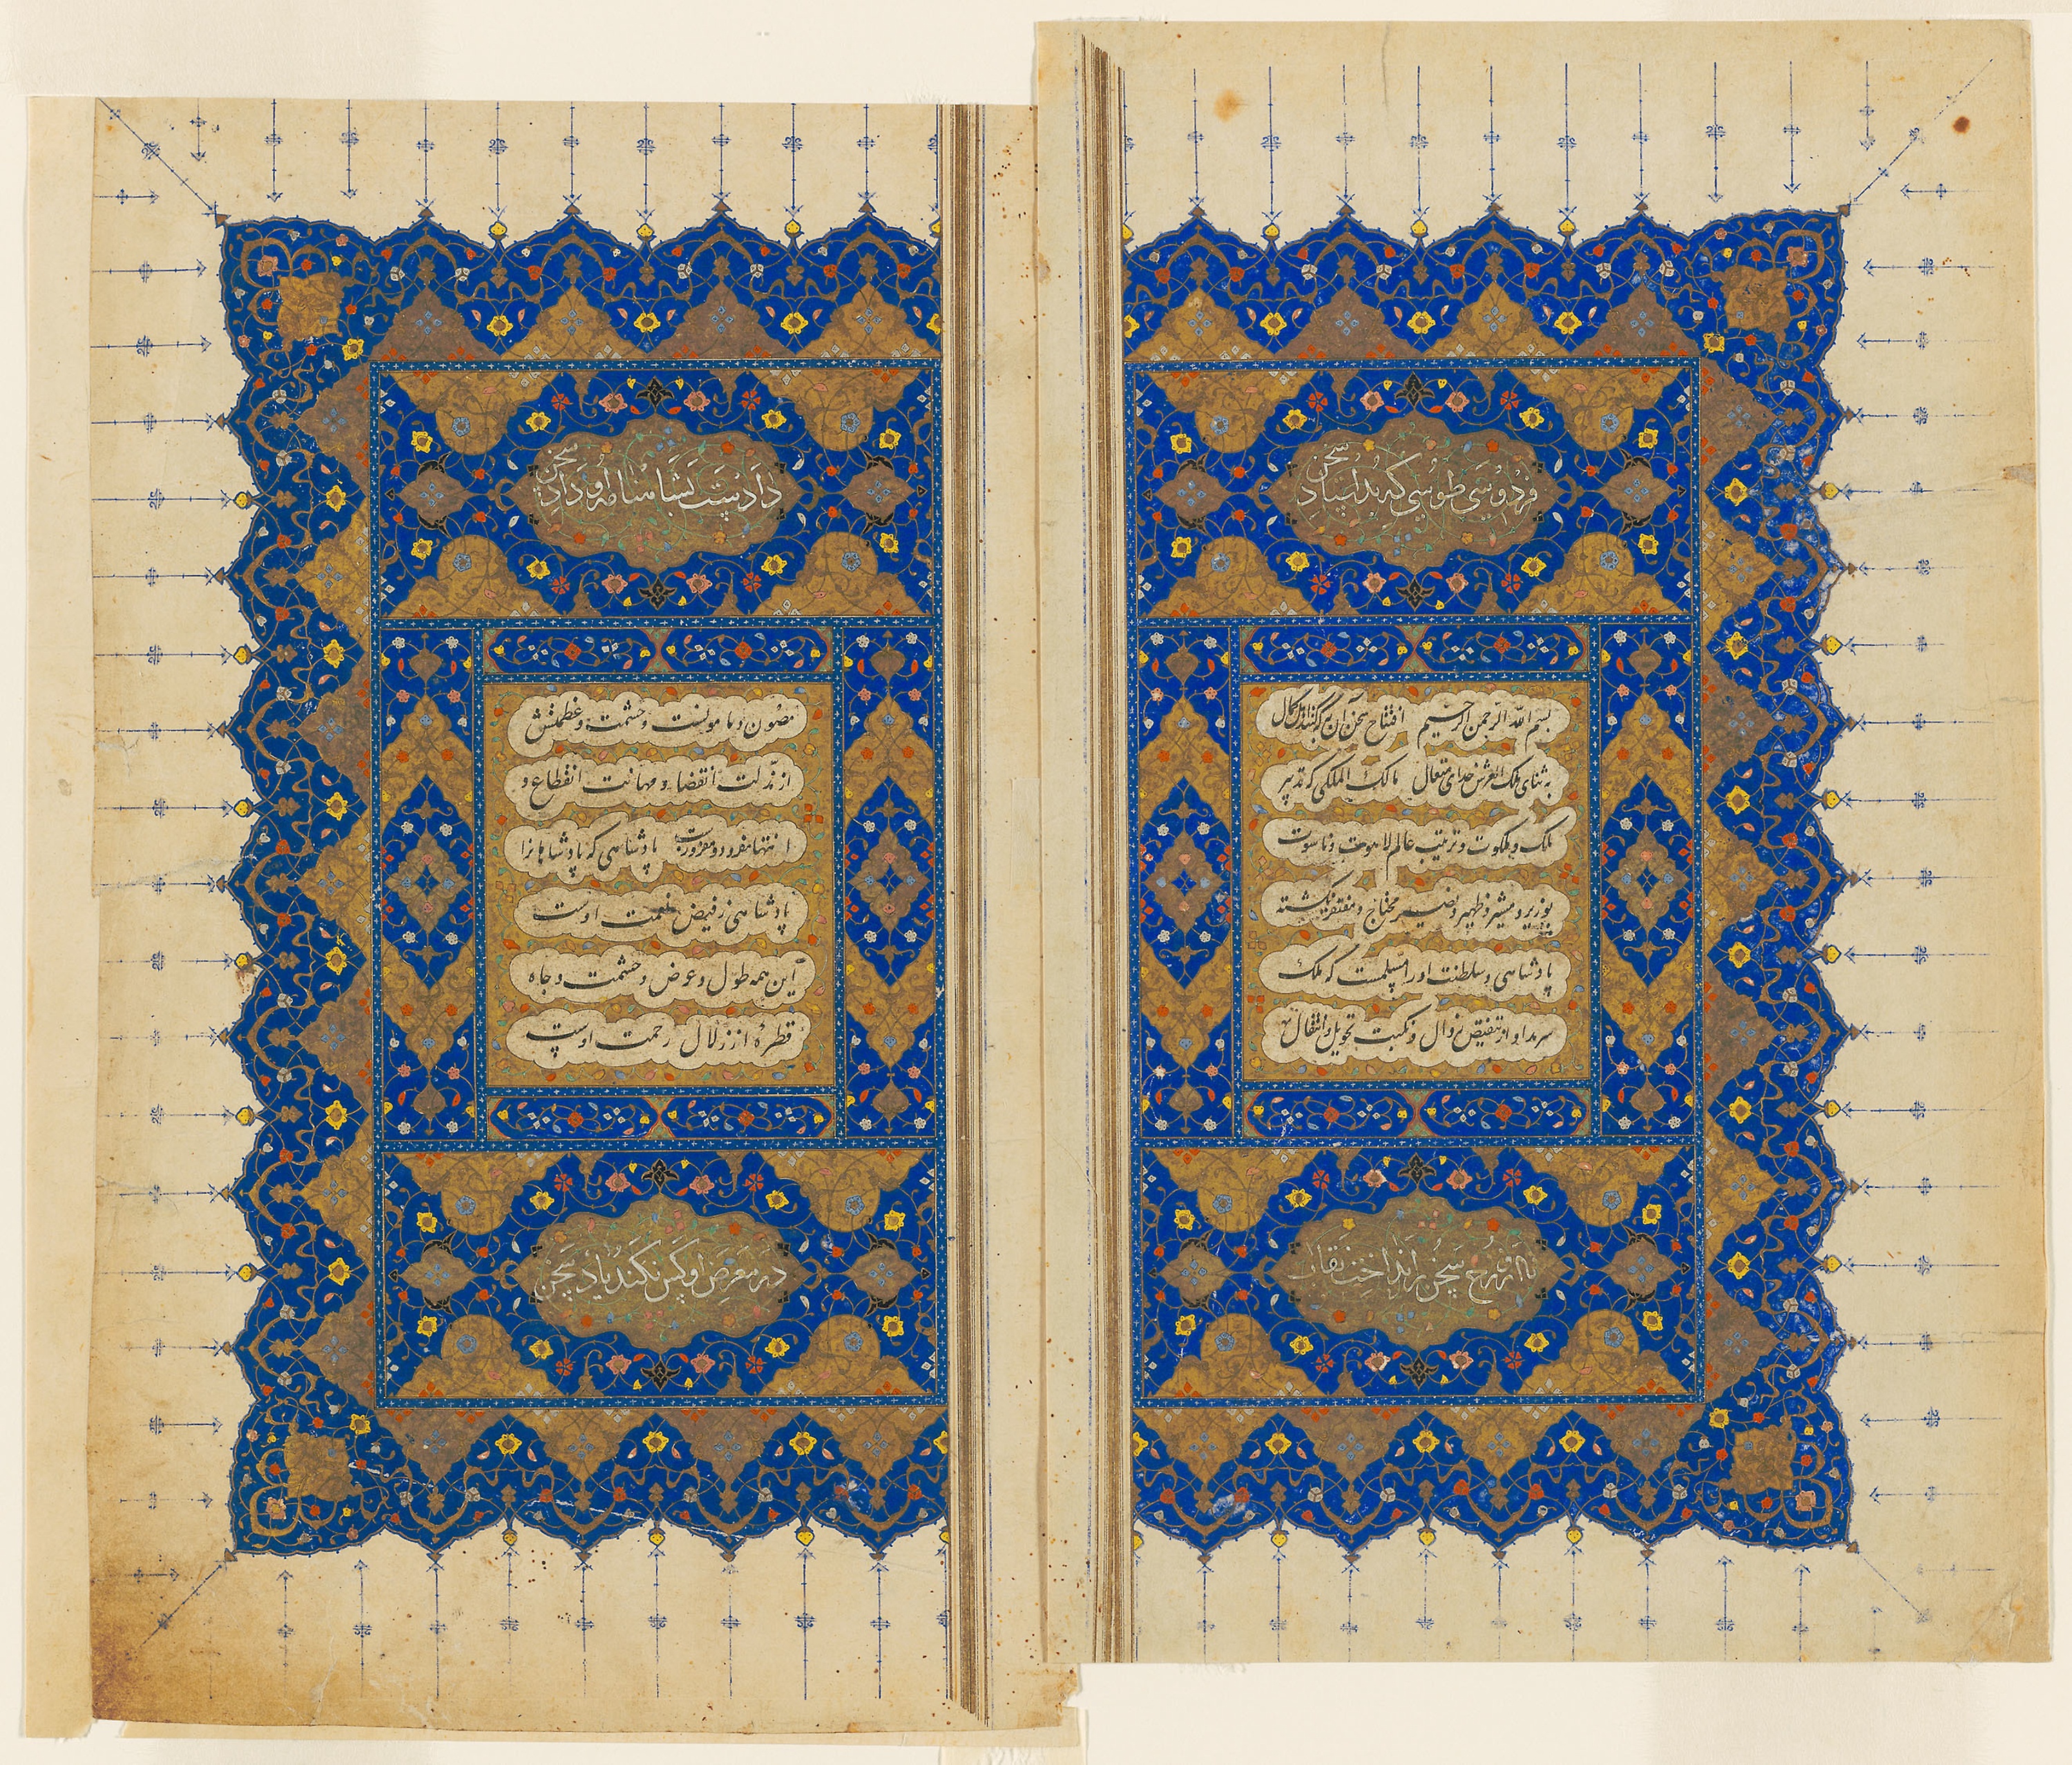 فردوسی طوسی که بداند سخن
بسم الله الرحمن الرحیم افتتاح سخن آن به که کنند اهل کمال
به ثنای ملک العرش خدای متعال مالک الملکی که تدبیر
ملک و ملکوت و ترتیب عالم لاهوت و ناسوت
بوزیر و مشیر و ظهیر و نصیر محتاج و مفتقر نگشته
پادشاهی و سلطنت او را مسلمست که ملک
سرمد او از تنقیص زوال و نکبت تحویل و انتقال
تا از رخ سخن بر انداخت نقاب
داد سخن
مصون و مامونست و حشمت و عظمتش
از مذلت انقضا و مهانت انقطاع و
انتها پادشاهی که پادشاهانرا
پادشاهی ز فیض نعمت اوست
این همه طول و عرض و حشمت و جاه
قطرهٔ از زلال رحمت اوست
در معرض او کس نکند یاد سخن